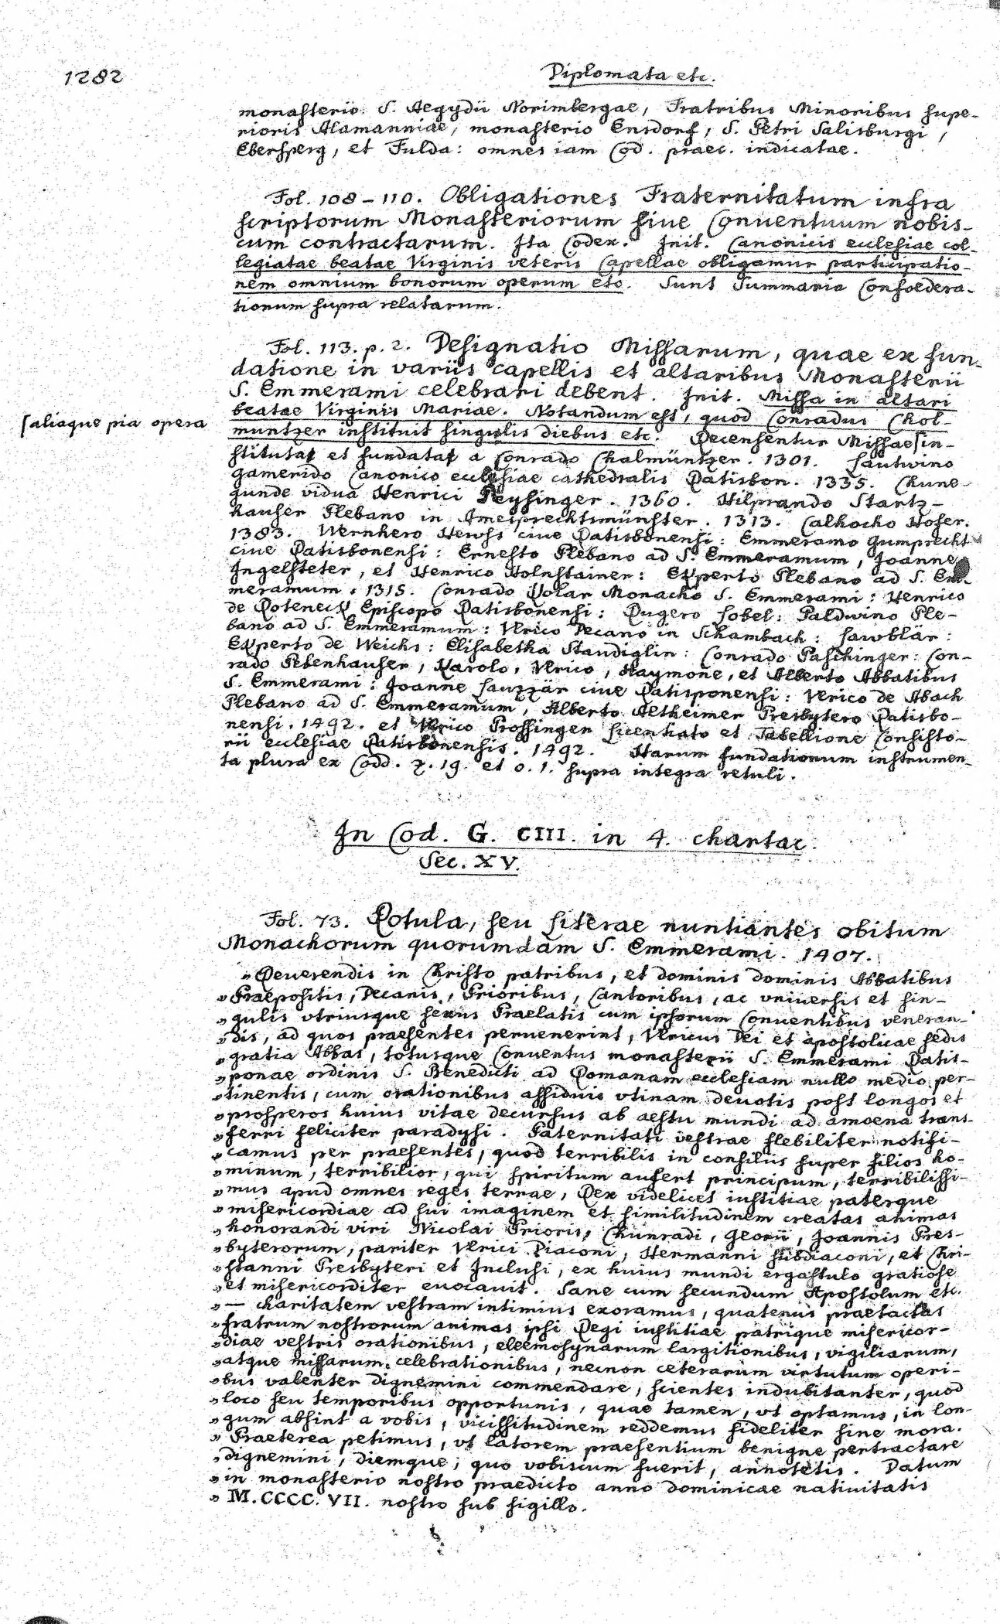 1282
Diplomata etc.
monasterio S. Aegydii Norimbergae, Fratribus Minoribus supe-
rioris Alamanniae, monasterio Ensdorf, S. Petri Salisburgi,
Ebersperg, et Fulda: omnes iam Cod. praec. indicatae.
Fol. 108–110. Obligationes Fraternitatum infra
scriptorum Monasteriorum sive Conuentuum nobis-
cum contractarum. Ita Codex. Init. Canonicis ecclesiae col-
legiatae beatae Virginis veteris Capellae obligamur participatio-
nem omnium bonorum operum etc. Sunt Summaria Confoedera-
tionum supra relatarum.
Fol. 113. p. 2. Designatio Missarum, quae ex fun-
datione in variis capellis et altaribus Monasterii
S. Emmerami celebrari debent. Init. Missa in altari
beatae Virginis Mariae. Notandum est, quod Conradus Chol-
aliaque pia opera
muntzer instituit singulis diebus etc. Recensentur Missae in-
stitutae et fundatae a Conrado Chalmüntzer. 1301. Lautwino
gamerido Canonico ecclesiae cathedralis Ratisbon. 1335. Chune-
gunde vidua Henrici Reysinger. 1360. Hilprando Startz-
hauser Plebano in Ameisprechtsmünster. 1313. Calhocho Hofer.
1383. Wernhero Hewss ciue Ratisbonensi: Emmeramo Gumprecht
ciue Ratisbonensi: Ernesto Plebano ad S. Emmeramum, Joanne
Ingelsteter, et Henrico Holnstainer: Ekperto Plebano ad S. Em-
meramum. 1315. Conrado Polar Monacho S. Emmerami: Henrico
de Roteneck Episcopo Ratisbonensi: Rugero Lobel: Paldwino Ple-
bano ad S. Emmeramum: Vlrico Decano in Schambach: Lawblär:
Ekperto de Weichs: Elisabetha Staudiglin: Conrado Paschinger: Con-
rado Pebenhauser, Karolo, Vlrico, Haymone, et Alberto Abbatibus
S. Emmerami: Joanne Lauzzär ciue Ratisponensi: Vlrico de Abach
Plebano ad S. Emmeramum, Alberto Altheimer Presbytero Ratisbo-
nensi. 1492. et Vlrico Prossinger Licentiato et Tabellione Consisto-
rii ecclesiae Ratisbonensis. 1492. Harum fundationum instrumen-
ta plura ex Codd. z. 19. et o. 1. supra integra retuli.
In Cod. G. CIII. in 4. chartac.
Sec. XV.
Fol. 73. Rotula, seu literae nuntiantes obitum
Monachorum quorumdam S. Emmerami. 1407.
„Reuerendis in Christo patribus, et dominis dominis Abbatibus
„Praepositis, Decanis, Prioribus, Cantoribus, ac vniuersis et sin-
„gulis vtriusque sexus Praelatis cum ipsorum Conuentibus veneran-
„dis, ad quos praesentes peruenerint, Vlricus Dei et apostolicae sedis
„gratia Abbas, totusque Conuentus monasterii S. Emmerami Ratis-
„ponae ordinis S. Benedicti ad Romanam ecclesiam nullo medio per-
„tinentis, cum orationibus assiduis vtinam deuotis post longos et
„prosperos huius vitae decursus ab aestu mundi ad amoena trans-
„ferri feliciter paradysi. Paternitati vestrae flebiliter notifi-
„camus per praesentes, quod terribilis in consiliis super filios ho-
„minum, terribilior, qui spiritum aufert principum, terribilissi-
„mus apud omnes reges terrae, Rex videlicet iustitiae paterque
„misericordiae ad sui imaginem et similitudinem creatas animas
„honorandi viri Nicolai Prioris, Chunradi, Georii, Joannis Pres-
„byterorum, pariter Vlrici Diaconi, Hermanni Subdiaconi, et Chri-
„stanni Presbyteri et Inclusi, ex huius mundi ergastulo gratiose
„et misericorditer euocauit. Sane cum secundum Apostolum etc.
„— charitatem vestram intimius exoramus, quatenus praetactas
„fratrum nostrorum animas ipsi Regi iustitiae patrique misericor-
„diae vestris orationibus, eleemosynarum largitionibus, vigiliarum,
„atque missarum celebrationibus, necnon ceterarum virtutum operi-
„bus valenter dignemini commendare, scientes indubitanter, quod
„loco seu temporibus opportunis, quae tamen, vt optamus, in lon-
„gum absint a vobis, vicissitudinem reddemus fideliter sine mora.
„Praeterea petimus, vt latorem praesentium benigne pertractare
„dignemini, diemque, quo vobiscum fuerit, annotetis. Datum
„in monasterio nostro praedicto anno dominicae natiuitatis
„M.CCCC.VII. nostro sub sigillo.